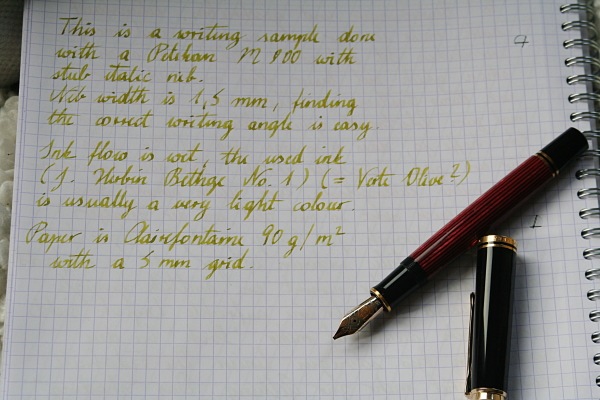 This is a writing sample done
with a Pelikan M 800 with
stub italic nib.
Nib width is 1,5 mm, finding
the correct writing angle is easy.
Ink flow is wet, the used ink
(J. Herbin Bethge No. 1) (= Verte Olive ?)
is usually a very light colour.
Paper is Clairefontaine 90 g/m²
with a 5 mm grid.